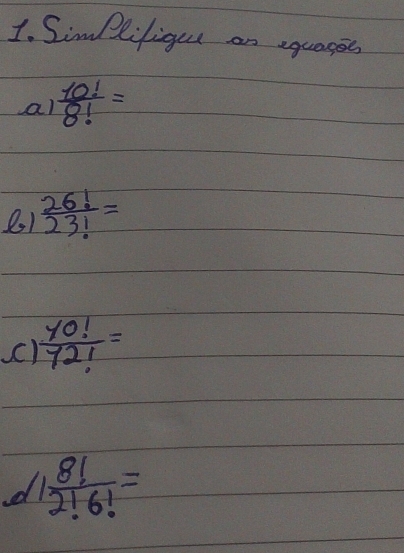 1. Simplifique as equações
a) 10!/8! =
b) 26!/23! =
c) 10!/12! =
d) 8!/2! 6! =